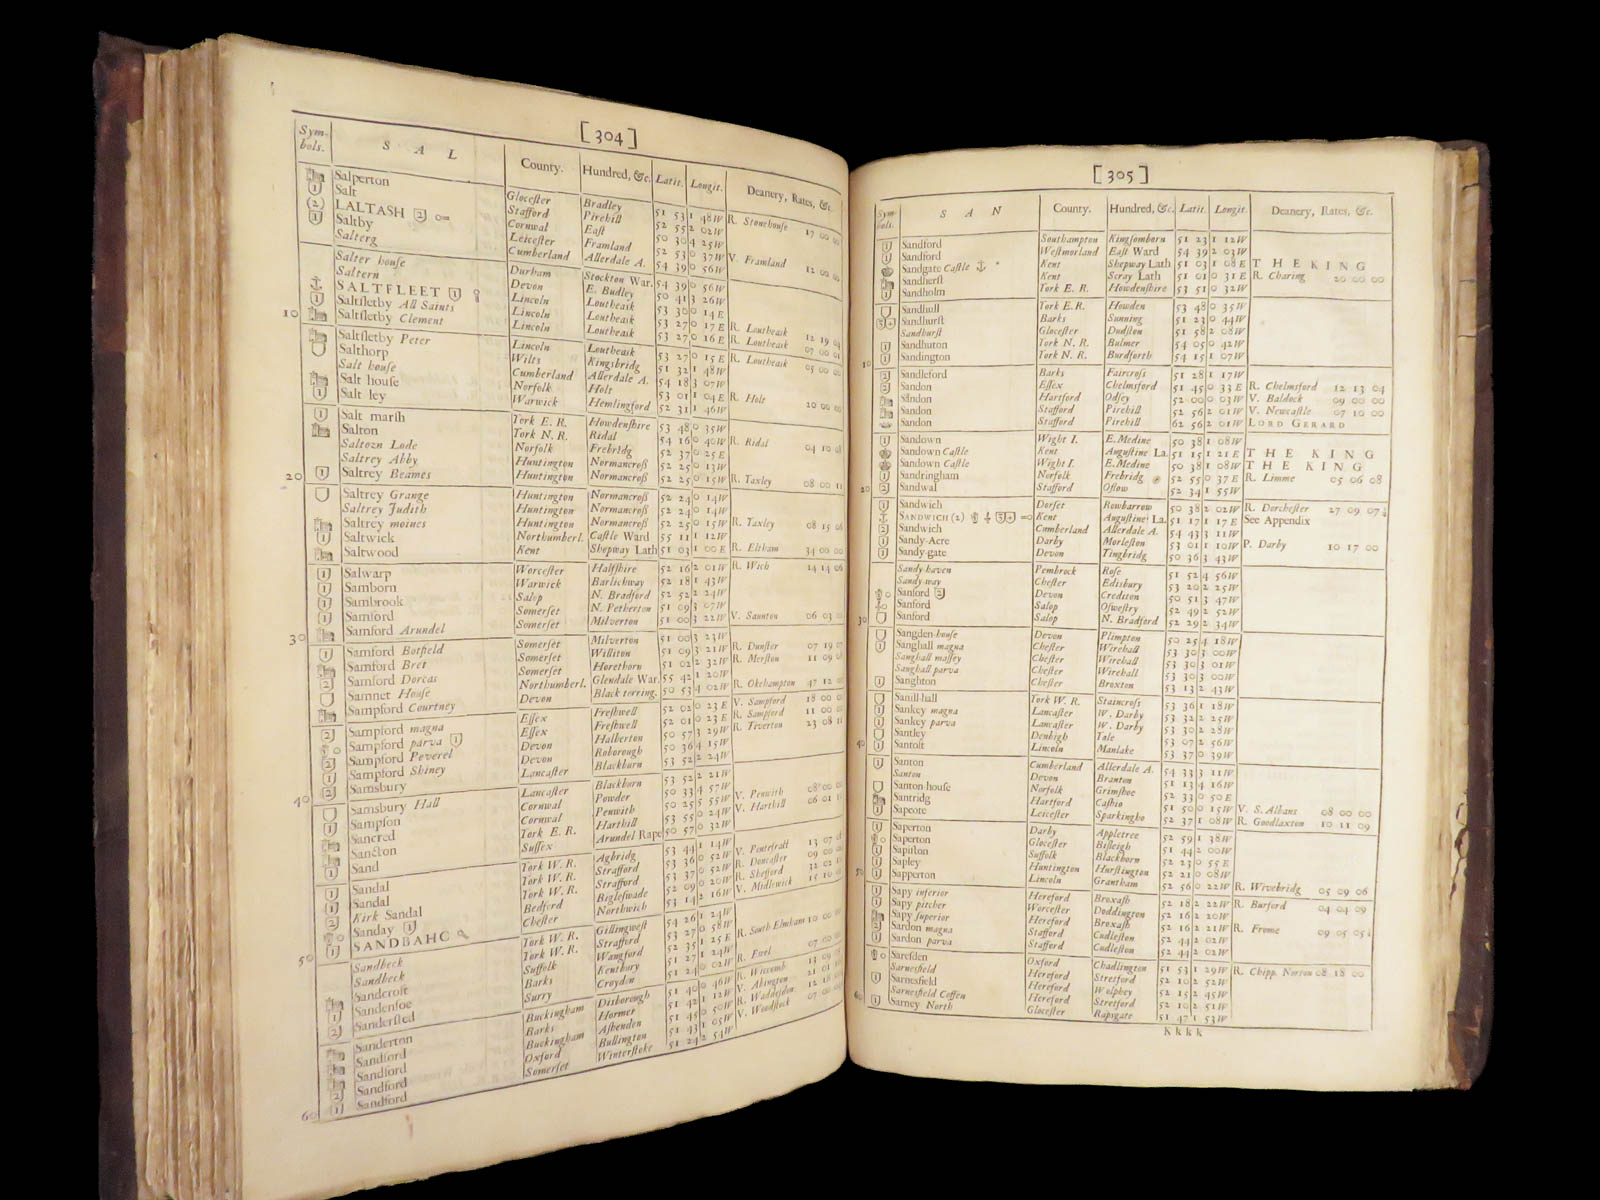 [304]
Sym-bols. S A L County. Hundred, &c. Latit. Longit. Deanery, Rates, &c.
Salperton Glocester Bradley 51 53 1 48W R. Stonehouse 17 00 00
Salt Stafford Pirehill 52 55 2 02W
LALTASH Cornwal East 50 30 4 25W
Saltby Leicester Framland 52 53 0 37W V. Framland 12 00 00
Salterg Cumberland Allerdale A. 54 39 0 56W
Salter house Durham Stockton War. 54 39 0 56W
Saltern Devon E. Budley 50 41 3 26W
SALTFLEET Lincoln Loutheask 53 30 0 14E
Saltfletby All Saints Lincoln Loutheask 53 27 0 17E R. Loutheask 12 19 04
10 Saltfletby Clement Lincoln Loutheask 53 27 0 16E R. Loutheask 07 00 01
Saltfletby Peter Lincoln Loutheask 53 27 0 15E R. Loutheask 05 00 00
Salthorp Wilts Kingsbridg 51 32 1 48W
Salt house Cumberland Allerdale A. 54 18 3 07W
Salt house Norfolk Holt 53 01 1 04E R. Holt 20 00 00
Salt ley Warwick Hemlingford 52 31 1 46W
Salt marsh York E. R. Howdenshire 53 48 0 35W
Salton York N. R. Ridal 54 16 0 40W R. Ridal 04 10 08
Saltozn Lode Norfolk Frebridg 52 37 0 25E
Saltrey Abby Huntington Normancross 52 25 0 13W
20 Saltrey Beames Huntington Normancross 52 25 0 15W R. Yaxley 08 00 11
Saltrey Grange Huntington Normancross 52 24 0 14W
Saltrey Judith Huntington Normancross 52 24 0 14W
Saltrey moines Huntington Normancross 52 25 0 15W R. Yaxley 08 15 06
Saltwick Northumberl. Castle Ward 55 11 1 12W
Saltwood Kent Shepway Lath 51 03 1 00E R. Eltham 34 00 00
Salwarp Worcester Halfshire 52 16 2 01W R. Wich 14 14 06
Samborn Warwick Barlichway 52 18 1 43W
Sambrook Salop N. Bradford 52 52 2 24W
Samford Somerset N. Petherton 51 09 3 07W
30 Samford Arundel Somerset Milverton 51 00 3 22W V. Saunton 06 03
Samford Botfield Somerset Milverton 51 00 3 23W
Samford Bret Somerset Williton 51 09 3 21W R. Dunster 07 19
Samford Dorcas Somerset Horethorn 51 02 2 32W R. Merston 11 09
Samnet House Northumberl. Glendale War. 55 42 1 20W
Sampford Courtney Devon Black torring. 50 53 4 02W R. Okehampton 47 12
Sampford magna Essex Freshwell 52 02 0 23E V. Sampford 18 00
Sampford parva Essex Freshwell 52 01 0 23E R. Sampford 11 00
Sampford Peverel Devon Halberton 50 57 3 29W R. Tiverton 23 08 11
Sampford Shiney Devon Roborough 50 36 4 15W
40 Samsbury Lancaster Blackburn 53 52 2 24W
Samsbury Hall Lancaster Blackburn 53 52 2 21W
Sampson Cornwal Powder 50 33 4 57W
Sancred Cornwal Penwith 50 25 5 55W V. Penwith 08 00
Sancton York E. R. Harthil 53 55 0 24W V. Harthill 06 01
Sand Sussex Arundel Rape 50 57 0 32W
Sandal York W. R. Agbridg 53 44 1 14W V. Pontefratt 13 07
Sandal York W. R. Strafford 53 36 0 52W R. Doncaster 09 00
Kirk Sandal York W. R. Strafford 53 37 0 52W R. Shefford 32 02
Sanday Bedford Bigleswade 52 09 0 20W V. Midlewick 15 16
50 SANDBAHC Chester Northwich 53 14 2 16W
Sandbeck York W. R. Gillingwest 54 26 1 24W
Sandbeck York W. R. Strafford 53 27 0 58W
Sandcroft Suffolk Wangford 52 35 1 25E R. South Elmham 10 00
Sandenfoe Barks Kentbury 51 27 1 24W
Sandersted Surry Croydon 51 24 0 02W R. Ewel 07
Sanderton Buckingham Disborough 51 40 0 46W R. Wiccomb 13 09
Sandford Barks Hormer 51 42 1 12W V. Abington 21 01
Sandford Buckingham Ashenden 51 45 0 50W R. Waddesdon 12 18
Sandford Oxford Bullington 51 43 1 05W V. Woodstock 07
60 Sandford Somerset Winterstoke 51 24 2 54W
[305]
Sym-bols. S A N County. Hundred, &c. Latit. Longit. Deanery, Rates, &c.
Sandford Southampton Kingsomborn 51 23 1 12W
Sandford Westmorland East Ward 54 39 2 03W
Sandgate Castle Kent Shepway Lath 51 03 1 08E THE KING
Sandherst Kent Scray Lath 51 01 0 31E R. Charing 20 00 00
Sandholm York E. R. Howdenshire 53 51 0 32W
Sandhull York E. R. Howden 53 48 0 35W
Sandhurst Barks Sunning 51 23 0 44W
Sandhurst Glocester Dudston 51 58 2 08W
Sandhuton York N. R. Bulmer 54 05 0 42W
10 Sandington York N. R. Burdforth 54 15 1 07W
Sandleford Barks Faircross 51 28 1 17W
Sandon Essex Chelmsford 51 45 0 33E R. Chelmsford 12 13 04
Sandon Hartford Odsey 52 00 0 03W V. Baldock 09 00 00
Sandon Stafford Pirehill 52 56 2 01W V. Newcastle 07 10 00
Sandon Stafford Pirehill 62 56 2 01W LORD GERARD
Sandown Wight I. E. Medine 50 38 1 08W
Sandown Castle Kent Augustine La. 51 15 1 21E THE KING
Sandown Castle Wight I. E. Medine 50 38 1 08W THE KING
Sandringham Norfolk Frebridg 52 55 0 37E R. Limme 05 06 08
20 Sandwal Stafford Offow 52 34 1 55W
Sandwich Dorset Rowbarrow 50 38 2 02W R. Dorchester 27 09 07½
SANDWICH (2) Kent Augustine La. 51 17 1 17E See Appendix
Sandwich Cumberland Allerdale A. 54 43 3 11W
Sandy-Acre Darby Morleston 53 01 1 10W P. Darby 10 17 00
Sandy-gate Devon Tingbridg 50 36 3 43W
Sandy haven Pembrock Rose 51 52 4 56W
Sandy way Chester Edisbury 53 20 2 25W
Sanford Devon Crediton 50 51 3 47W
Sanford Salop Oswestry 52 49 2 52W
30 Sanford Salop N. Bradford 52 29 2 34W
Sangden-house Devon Plimpton 50 25 4 18W
Sanghall magna Chester Wirehall 53 30 3 00W
Sanghall massey Chester Wirehall 53 30 3 01W
Sanghall parva Chester Wirehall 53 30 3 00W
Sanghton Chester Broxton 53 13 2 43W
Sanill-hall York W. R. Staincross 53 36 1 18W
Sankey magna Lancaster W. Darby 53 32 2 25W
Sankey parva Lancaster W. Darby 53 30 2 28W
Santley Denbigh Yale 53 07 2 56W
40 Santoft Lincoln Manlake 53 37 0 39W
Santon Cumberland Allerdale A. 54 33 3 11W
Santon Devon Branton 51 13 4 16W
Santon house Norfolk Grimshoe 52 33 0 50E
Santridg Hartford Cashio 51 50 0 15W V. S. Albans 08 00 00
Sapcote Leicester Sparkingho 52 37 1 08W R. Goodlaxton 10 11 09
Saperton Darby Appletree 52 59 1 38W
Saperton Glocester Bisleigh 51 44 2 00W
Sapiston Suffolk Blackborn 52 23 0 55E
Sapley Huntington Hurstington 52 21 0 08W
50 Sapperton Lincoln Grantham 52 56 0 22W R. Wivebridg 05 09 06
Sapy inferior Hereford Broxash 52 18 2 22W R. Burford 04 04 09
Sapy pitcher Worcester Doddington 52 16 2 20W
Sapy superior Hereford Broxash 52 16 2 21W R. Frome 09 05 05
Sardon magna Stafford Cudleston 52 44 2 02W
Sardon parva Stafford Cudleston 52 44 2 02W
Saresden Oxford Chadlington 51 53 1 29W R. Chipp. Norton 08 18 00
Sarnesfield Hereford Stretford 52 10 2 52W
Sarnesfield Hereford Wolphey 52 15 2 45W
Sarnesfield Coffen Hereford Stretford 52 10 2 51W
60 Sarney North Glocester Rapsgate 51 47 1 53W
K k k k